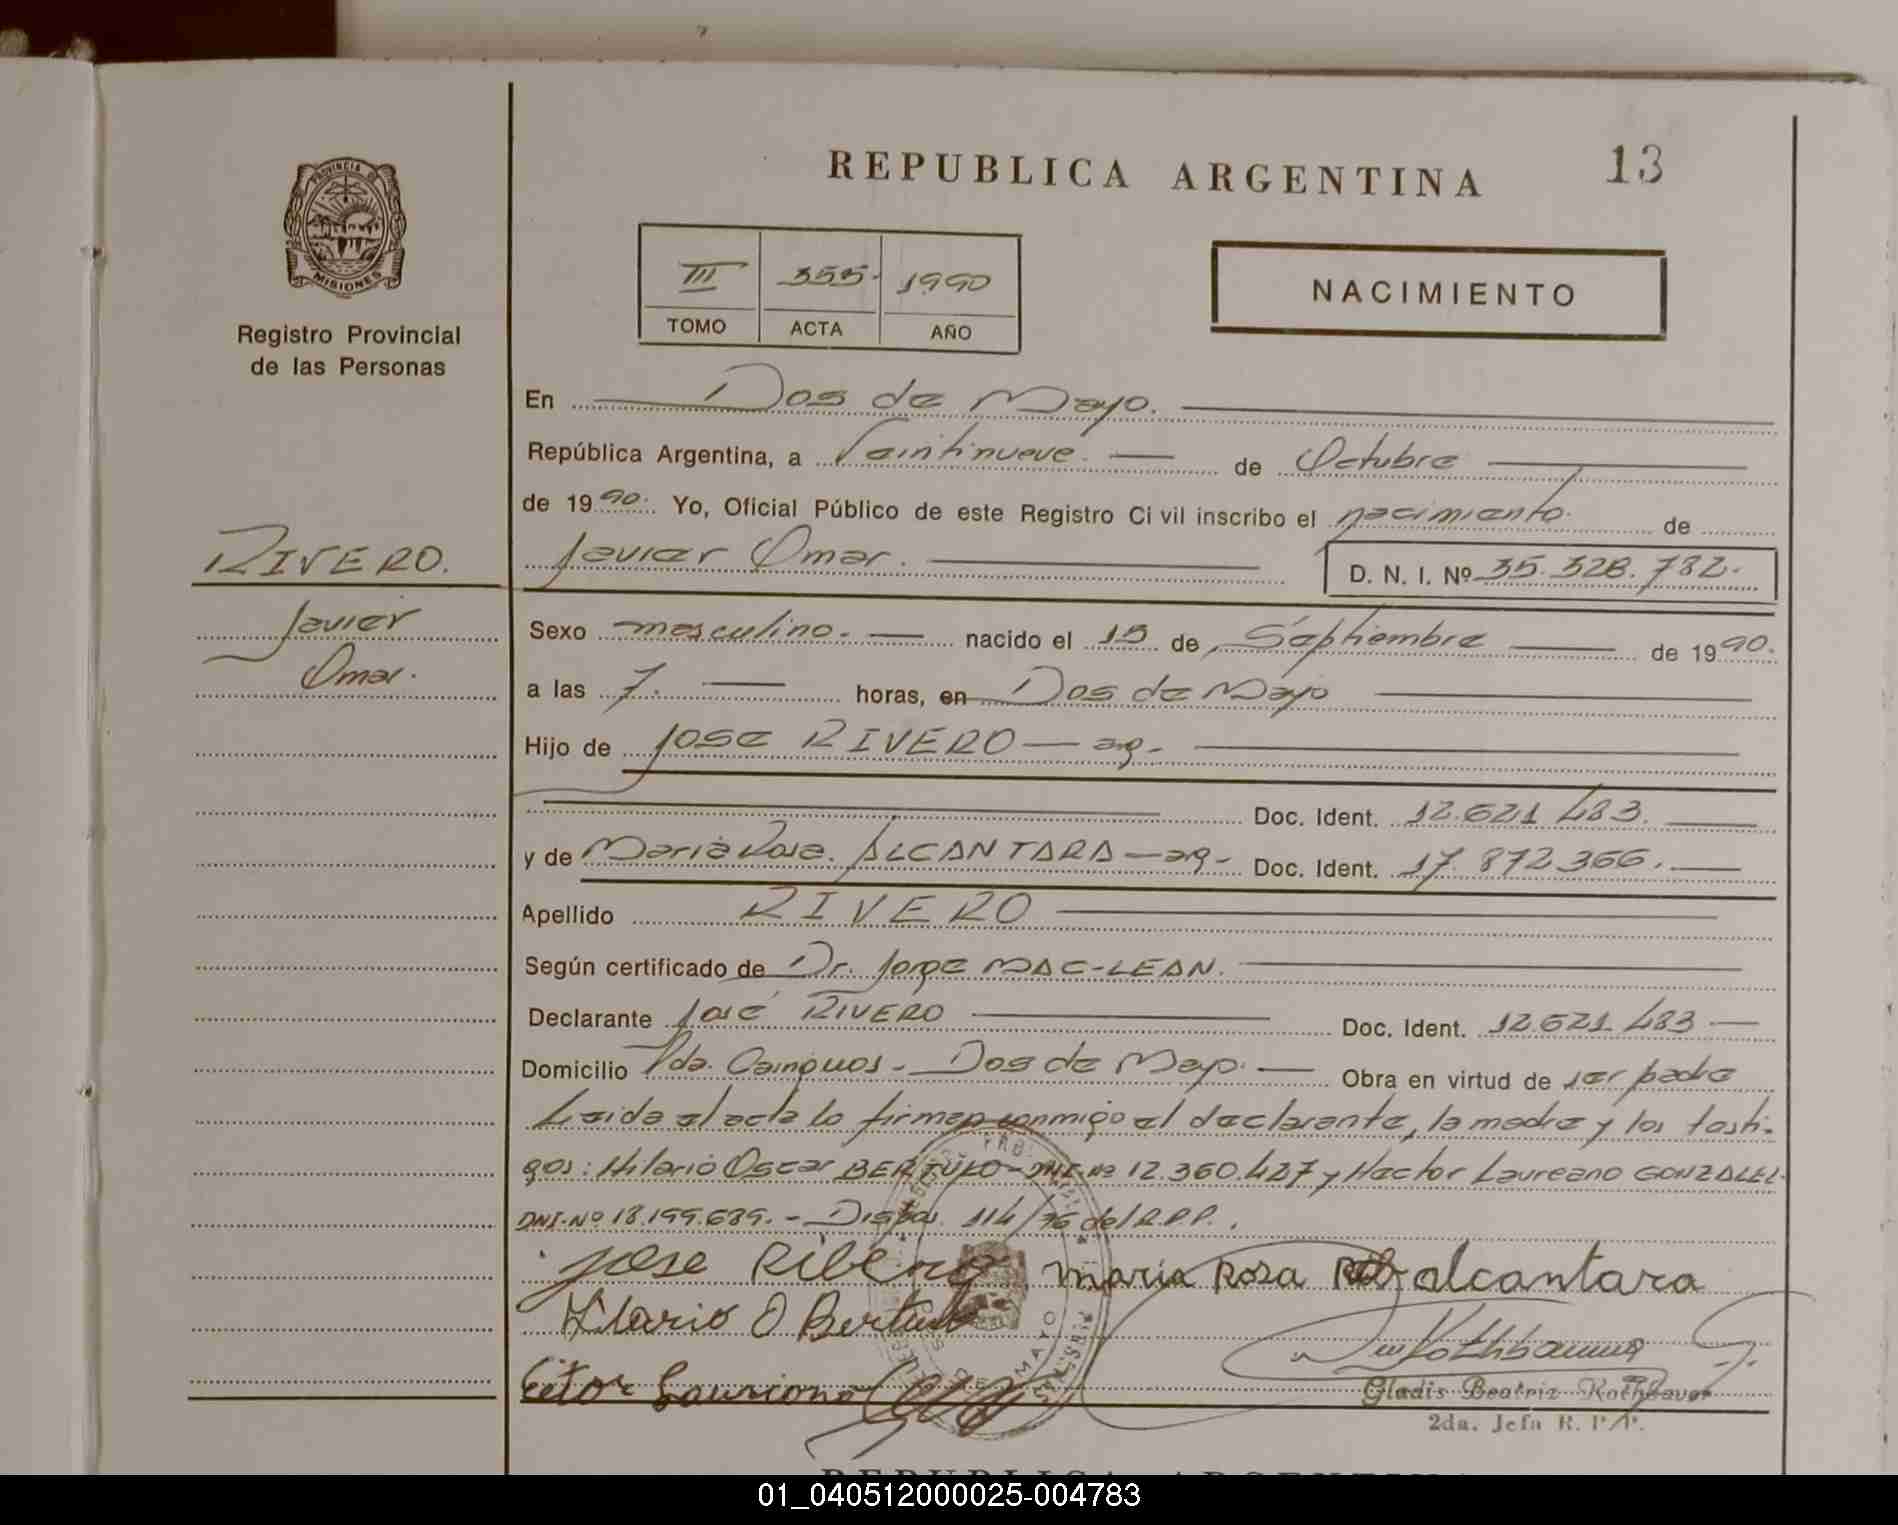 REPUBLICA ARGENTINA
13
PROVINCIA DE
MISIONES
Registro Provincial
de las Personas
III 353. 1990
TOMO ACTA AÑO
NACIMIENTO
En Dos de Mayo.
República Argentina, a Veintinueve. de Octubre
de 1990. Yo, Oficial Público de este Registro Civil inscribo el nacimiento. de
RIVERO.
Javier Omar. D. N. I. Nº 35.328.782.
Javier
Omar.
Sexo masculino. nacido el 15 de Septiembre de 1990.
a las 7. horas, en Dos de Mayo
Hijo de Jose RIVERO — ag.
Doc. Ident. 12.621.483.
y de Maria Rosa. ALCANTARA — ag. Doc. Ident. 17.872.366.
Apellido RIVERO
Según certificado de Dr. Jorge MAC-LEAN.
Declarante José RIVERO Doc. Ident. 12.621.483
Domicilio Pda. Dos de Mayo. Obra en virtud de ser padre
Leida el acta lo firman conmigo el declarante, la madre y los testi-
gos: Hilario Oscar DNI-Nº 12.360.427 y Hector Laureano GONZALEZ-
DNI-Nº 18.199.689. - Dispos. 114/76 del R.P.P.
Jose Ribero maria Rosa alcantara
Hilario O
Gladis Beatriz Kothbaver
2da. Jefa R. P. P.
REPUBLICA ARGENTINA
01_040512000025-004783